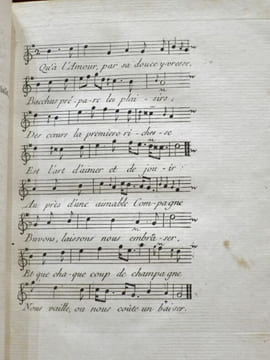 Qu'à l'Amour, par sa douce y-vresse,
Bacchus pré-pa-re les plai-sirs,
Des cœurs la premiere ri-ches-se
Est l'art d'aimer et de jou-ir.
Au près d'une aimable Com-pagne
Buvons, laissons nous embrâ-ser,
Et que cha-que coup de champagne
Nous vaille, ou nous coûte un baiser.